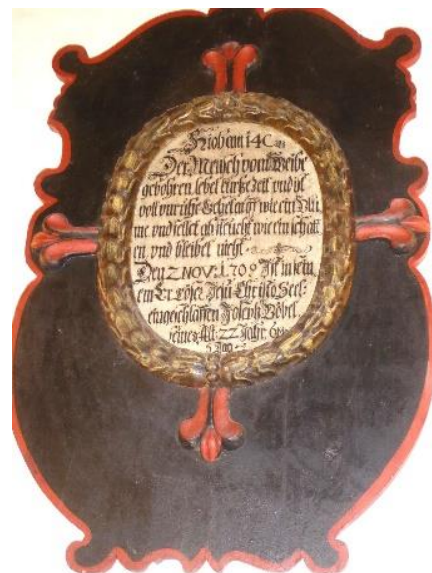 Hiob am 14 C
Der Mensch vom Weibe
gebohren lebet kurtze Zeit und ist
voll unruhe Gehet auff wie ein Blu
me und fellet ab fleucht wie ein schatt
en, und bleibet nicht
Den 2 NOV: 1709 Ist in sein
em Erlöser Jesu Christo Seel:
eingeschlaffen Joseph Böbel
seines Alt: 22 Jahr
5 Tag